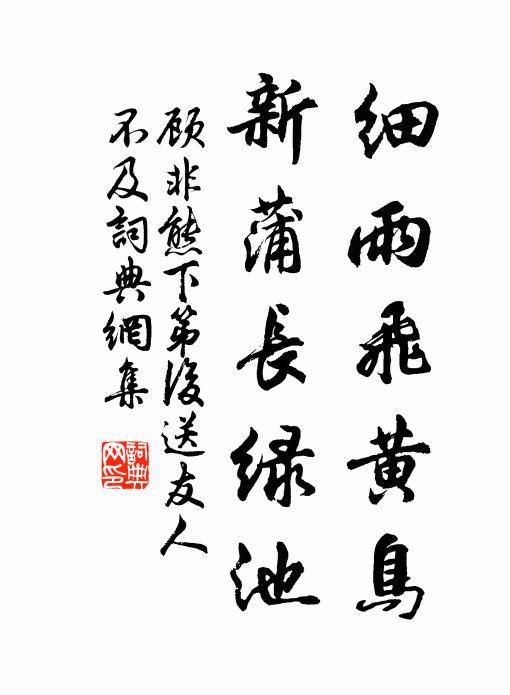 細雨飛黃鳥
新蒲長绿池
顾非熊下第後送友人
不及詞典網集
詞典網印